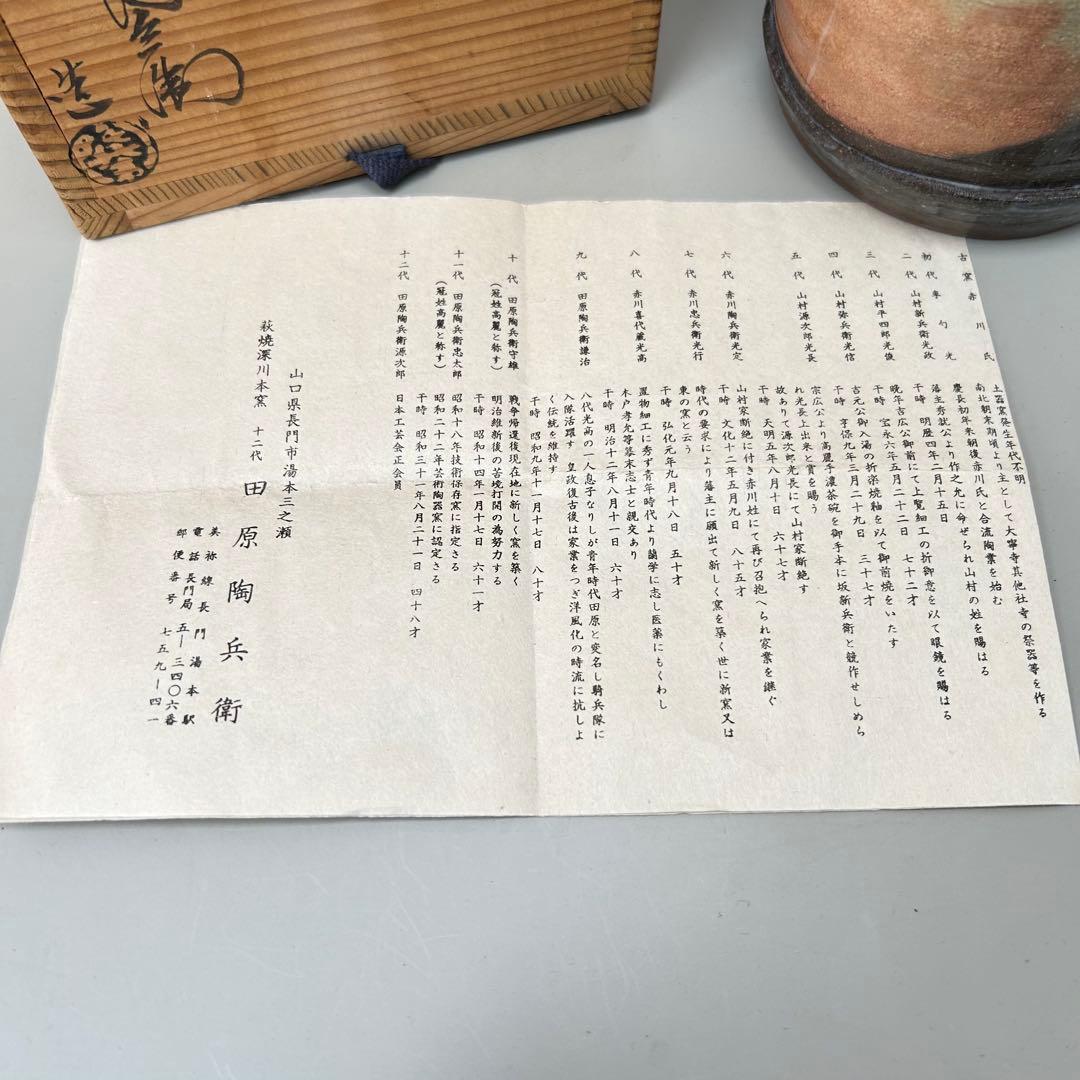 古窯赤川氏
土器窯発生年代不明
南北朝末期頃より主として大寧寺其他社寺の祭器等を作る
初代 李勺光
慶長初年来朝後赤川氏と合流陶業を始む
二代 山村新兵衛光政
藩主秀就公より作之允に命ぜられ山村の姓を賜はる
干時 明暦四年二月十五日
三代 山村平四郎光俊
晩年吉広公御前にて上覧細工の折御意を以て眼鏡を賜はる
干時 宝永六年五月二十二日 七十二才
四代 山村弥兵衛光信
吉元公御入湯の折楽焼釉を以て御前焼をいたす
干時 享保九年三月二十九日 三十七才
五代 山村源次郎光長
宗広公より高麗手濃茶碗を御手本に坂新兵衛と競作せしめら
れ光長上出来と賞を賜う
故ありて源次郎光長にて山村家断絶す
干時 天明五年八月十日 六十七才
六代 赤川陶兵衛光定
山村家断絶に付き赤川姓にて再び召抱へられ家業を継ぐ
干時 文化十二年五月九日 八十五才
七代 赤川忠兵衛光行
時代の要求により藩主に願出て新しく窯を築く世に新窯又は
東の窯と云う
干時 弘化元年九月十八日 五十才
八代 赤川喜代蔵光高
置物細工に秀ず青年時代より蘭学に志し医薬にもくわし
木戸孝允等幕末志士と親交あり
干時 明治十二年八月十一日 六十才
九代 田原陶兵衛謙治
八代光高の一人息子なりしが青年時代田原と変名し騎兵隊に
入隊活躍す 皇政復古後は家業をつぎ洋風化の時流に抗しよ
く伝統を維持す
干時 昭和九年十一月十七日 八十才
十代 田原陶兵衛守雄
(冠姓高麗と称す)
戦争帰還後現在地に新しく窯を築く
明治維新後の苦境打開の為努力する
干時 昭和十四年一月十七日 六十一才
十一代 田原陶兵衛忠太郎
(冠姓高麗と称す)
昭和十八年技術保存窯に指定さる
昭和二十二年芸術陶器窯に認定さる
干時 昭和三十一年八月二十一日 四十八才
十二代 田原陶兵衛源次郎
日本工芸会正会員
山口県長門市湯本三之瀬
萩焼深川本窯 十二代 田原陶兵衛
美祢線長門湯本駅
電話長門局五―三四〇六番
郵便番号 七五九―四一
兵衛
造